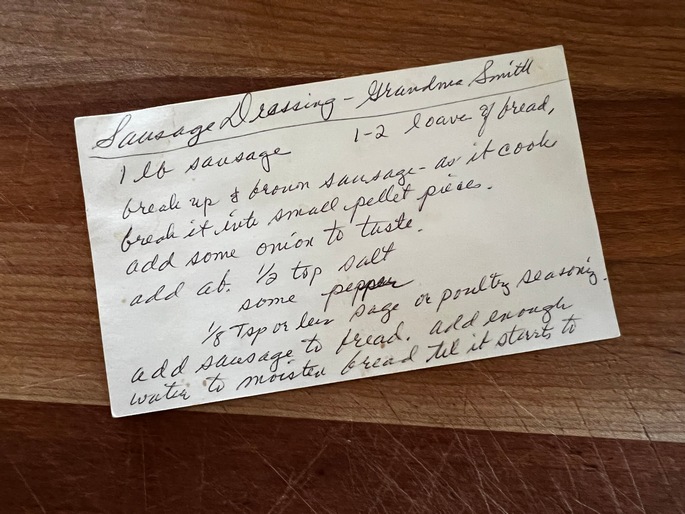 Sausage Dressing - Grandma Smith
1 lb sausage 1-2 loave of bread,
break up & brown sausage - as it cook
break it into small pellet pieces.
add some onion to taste.
add ab. 1/2 tsp salt
some pepper
1/8 Tsp or less sage or poultry seasoning.
add sausage to bread. add enough
water to moisten bread til it starts to